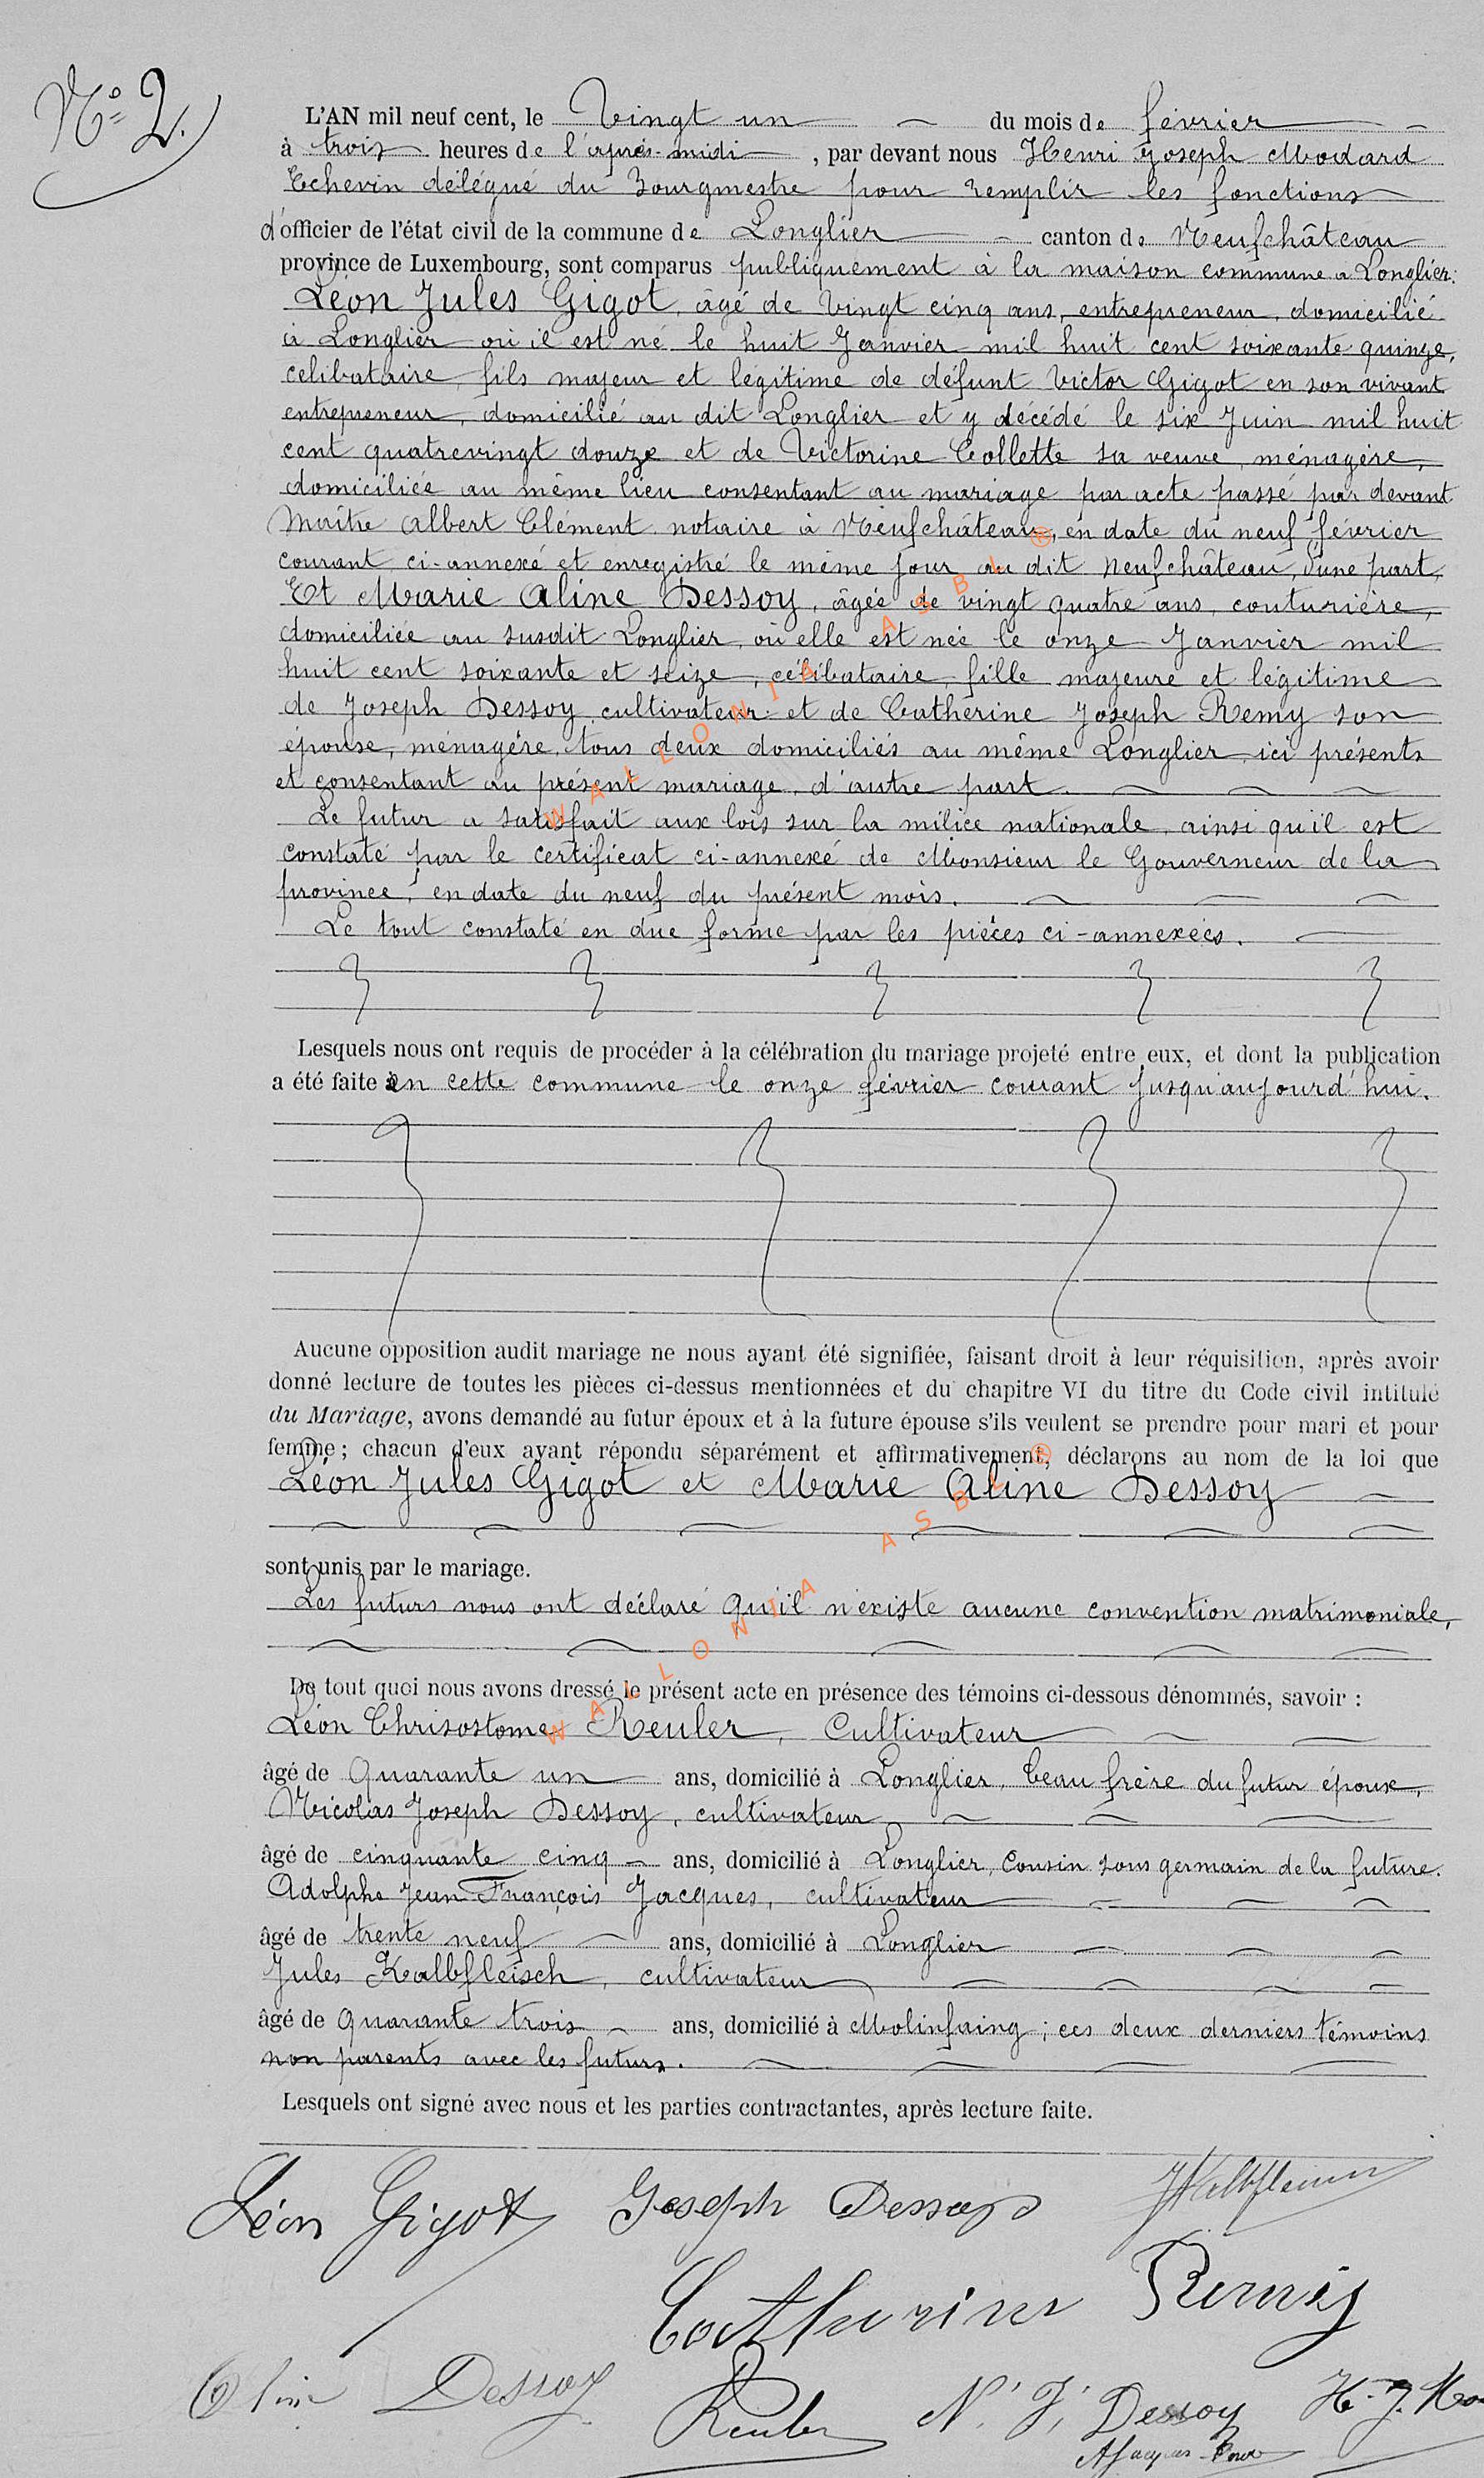 N° 2.
L'AN mil neuf cent, le Vingt un du mois de février
à trois heures de l'après-midi, par devant nous Henri Joseph Modard
Echevin délégué du Bourgmestre pour remplir les fonctions
d'officier de l'état civil de la commune de Longlier canton de Neufchâteau
province de Luxembourg, sont comparus publiquement à la maison commune a Longlier:
Léon Jules Gigot, âgé de vingt cinq ans, entrepreneur, domicilié
à Longlier où il est né le huit Janvier mil huit cent soixante quinze,
célibataire, fils majeur et légitime de défunt Victor Gigot en son vivant
entrepreneur, domicilié au dit Longlier et y décédé le six Juin mil huit
cent quatrevingt douze et de Victorine Collette sa veuve, ménagère,
domiciliée au même lieu consentant au mariage par acte passé par devant
Maître Albert Clément notaire à Neufchâteau, en date du neuf février
courant ci-annexé et enregistré le même jour au dit Neufchâteau, d'une part,
Et Marie Aline Dessoy, âgée de vingt quatre ans, couturière,
domiciliée au susdit Longlier, où elle est née le onze Janvier mil
huit cent soixante et seize, célibataire, fille majeure et légitime
de Joseph Dessoy, cultivateur et de Catherine Joseph Remy son
épouse, ménagère, tous deux domiciliés au même Longlier, ici présents
et consentant au présent mariage, d'autre part.
Le futur a satisfait aux lois sur la milice nationale, ainsi qu'il est
constaté par le certificat ci-annexé de Monsieur le Gouverneur de la
province, en date du neuf du présent mois.
Le tout constaté en due forme par les pièces ci-annexées.
Lesquels nous ont requis de procéder à la célébration du mariage projeté entre eux, et dont la publication
a été faite en cette commune le onze février courant jusqu'aujourd'hui.
Aucune opposition audit mariage ne nous ayant été signifiée, faisant droit à leur réquisition, après avoir
donné lecture de toutes les pièces ci-dessus mentionnées et du chapitre VI du titre du Code civil intitulé
du Mariage, avons demandé au futur époux et à la future épouse s'ils veulent se prendre pour mari et pour
femme; chacun d'eux ayant répondu séparément et affirmativement, déclarons au nom de la loi que
Léon Jules Gigot et Marie Aline Dessoy
sont unis par le mariage.
Les futurs nous ont déclaré qu'il n'existe aucune convention matrimoniale,
De tout quoi nous avons dressé le présent acte en présence des témoins ci-dessous dénommés, savoir :
Léon Chrisostome Reuler, Cultivateur
âgé de Quarante un ans, domicilié à Longlier, beau frère du futur époux,
Nicolas Joseph Dessoy, cultivateur
âgé de cinquante cinq ans, domicilié à Longlier, Cousin sous germain de la future.
Adolphe Jean François Jacques, cultivateur
âgé de trente neuf ans, domicilié à Longlier
Jules Kalbfleisch, cultivateur
âgé de Quarante trois ans, domicilié à Molinfaing; ces deux derniers témoins
non parents avec les futurs.
Lesquels ont signé avec nous et les parties contractantes, après lecture faite.
Léon Gigot Joseph Dessoy JKalbfleisch
Catherine Remy
Aline Dessoy Reuler N. J. Dessoy H. J. Mo
AJacques
WALLONIA ASBL ®
WALLONIA ASBL ®